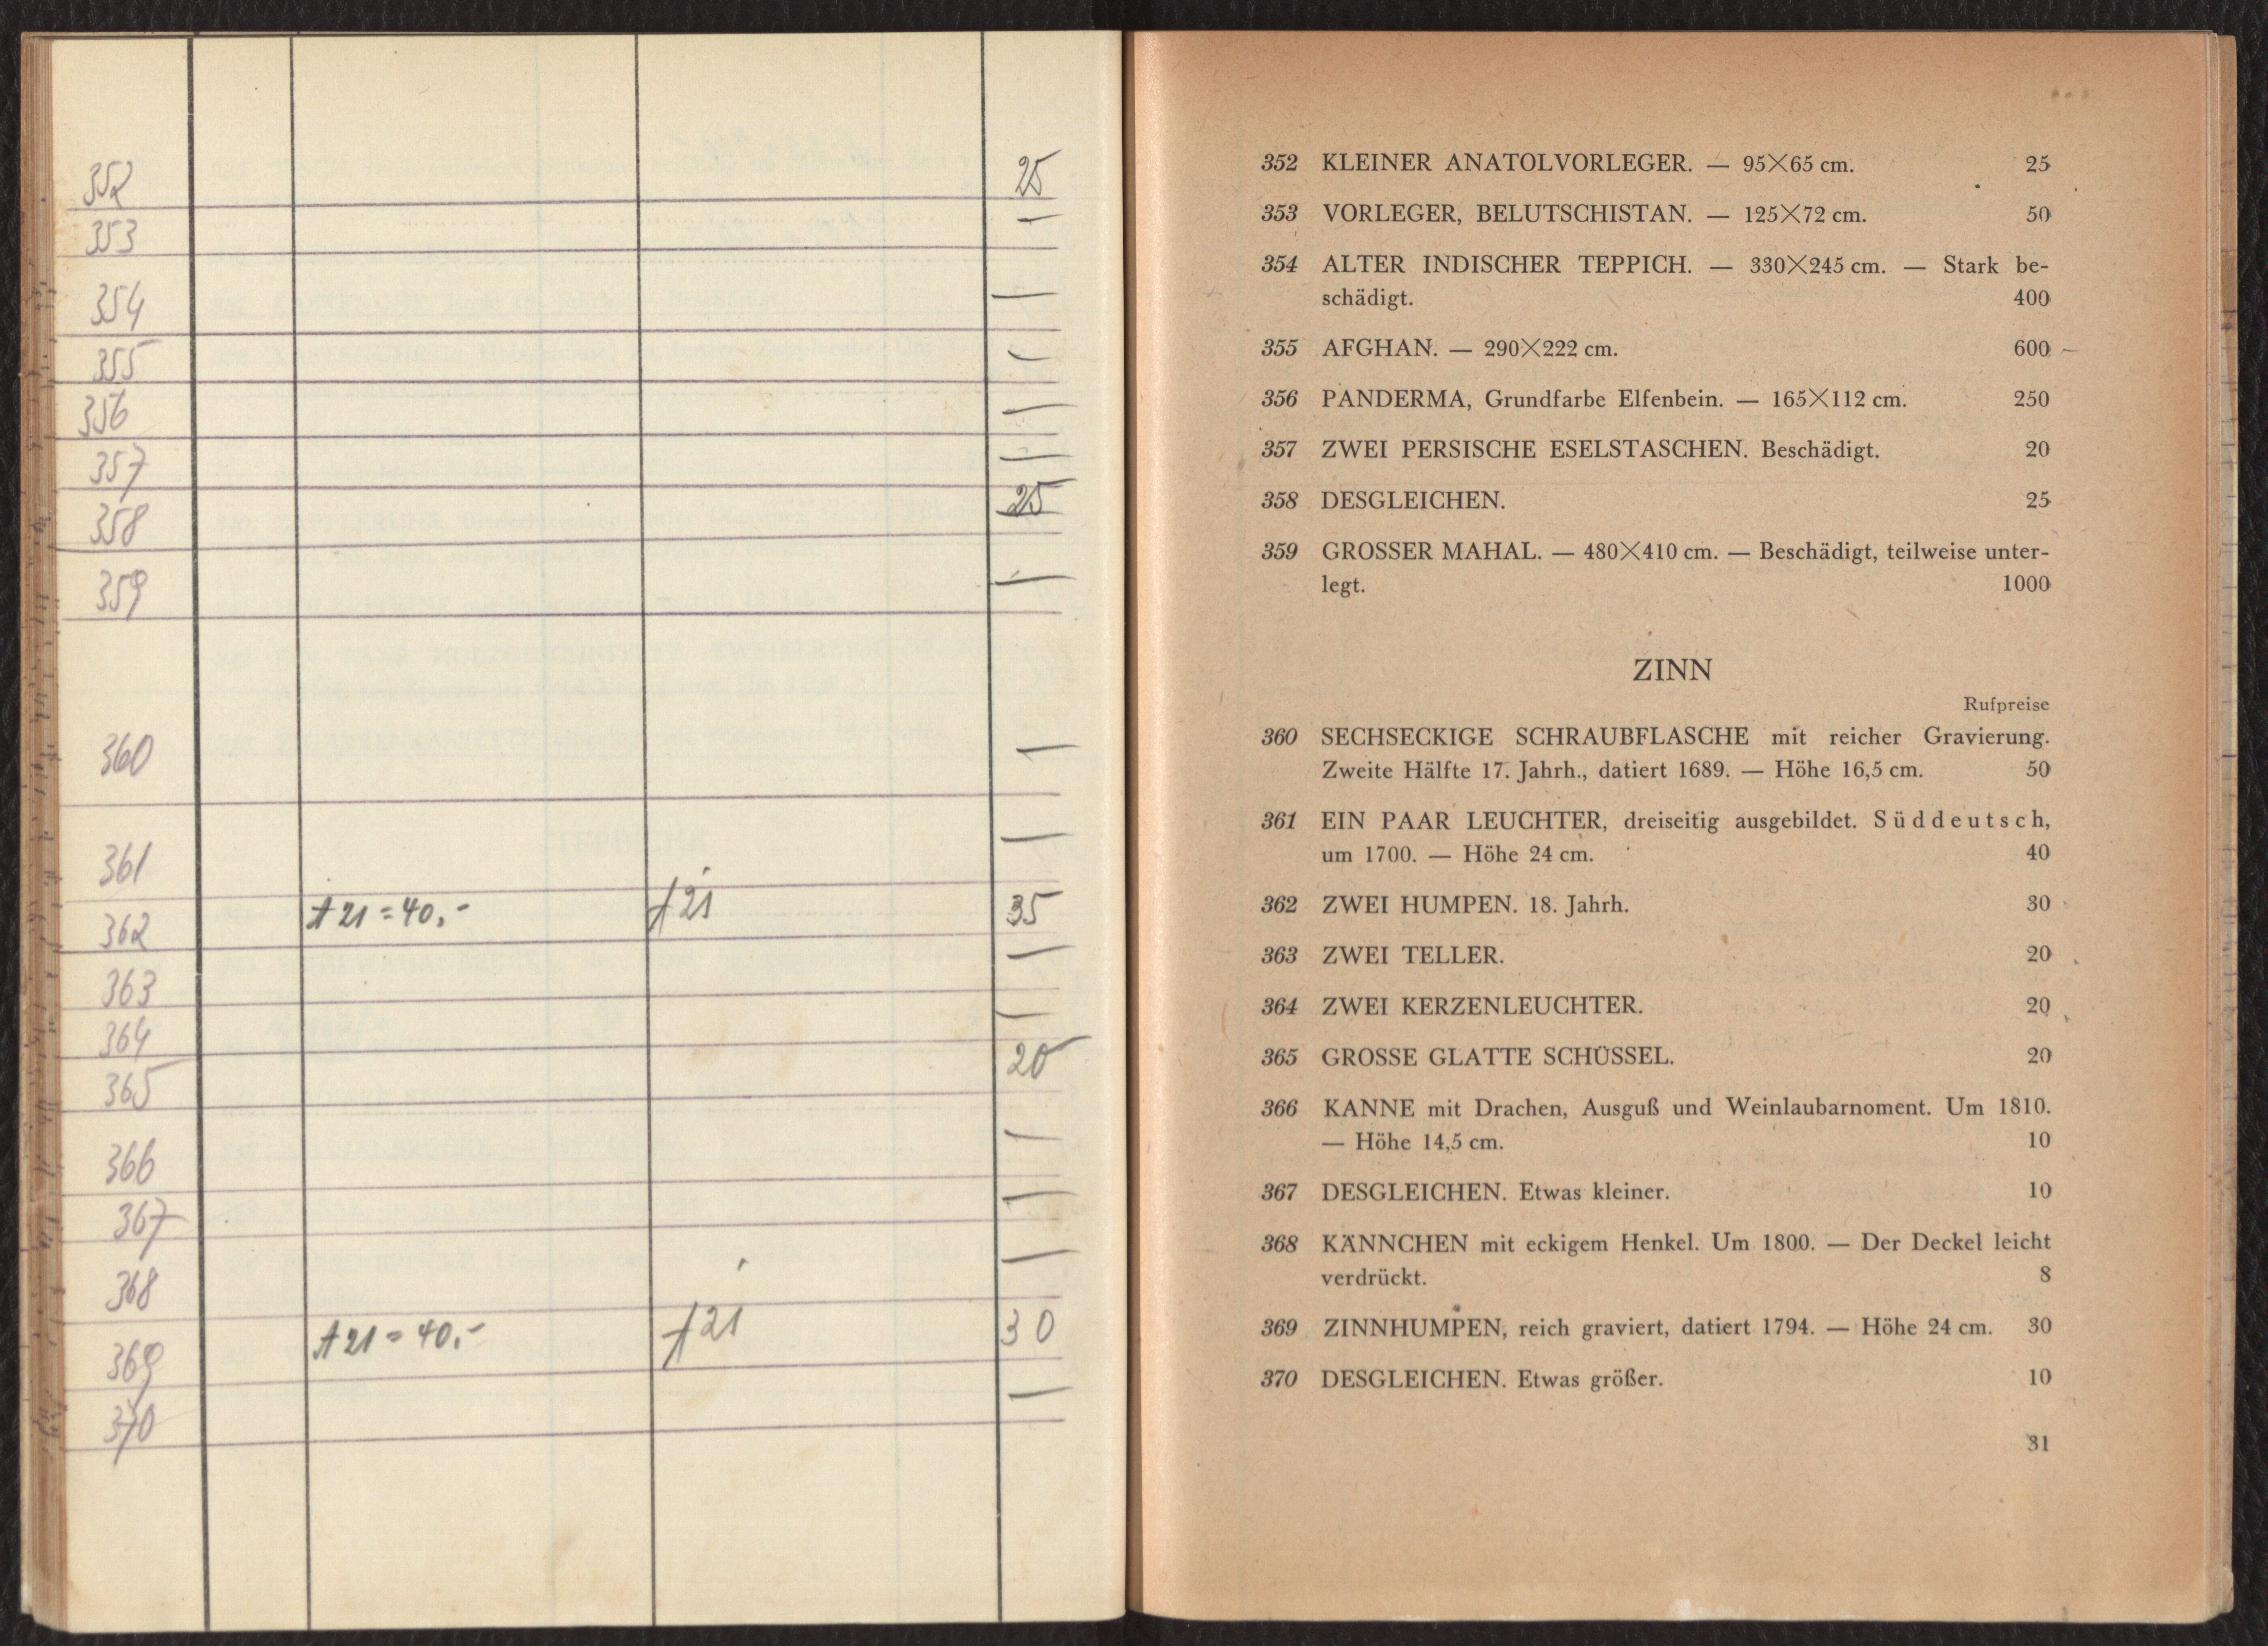 352 25
353 —
354 —
355 —
356 —
357 —
358 25
359 —
360 —
361 —
362 A 21 = 40,- A 21 35
363 —
364 —
365 20
366 —
367 —
368 —
369 A 21 = 40,- A 21 30
370 —
352 KLEINER ANATOLVORLEGER. — 95×65 cm. 25
353 VORLEGER, BELUTSCHISTAN. — 125×72 cm. 50
354 ALTER INDISCHER TEPPICH. — 330×245 cm. — Stark be-
schädigt. 400
355 AFGHAN. — 290×222 cm. 600
356 PANDERMA, Grundfarbe Elfenbein. — 165×112 cm. 250
357 ZWEI PERSISCHE ESELSTASCHEN. Beschädigt. 20
358 DESGLEICHEN. 25
359 GROSSER MAHAL. — 480×410 cm. — Beschädigt, teilweise unter-
legt. 1000
ZINN
Rufpreise
360 SECHSECKIGE SCHRAUBFLASCHE mit reicher Gravierung.
Zweite Hälfte 17. Jahrh., datiert 1689. — Höhe 16,5 cm. 50
361 EIN PAAR LEUCHTER, dreiseitig ausgebildet. Süddeutsch,
um 1700. — Höhe 24 cm. 40
362 ZWEI HUMPEN. 18. Jahrh. 30
363 ZWEI TELLER. 20
364 ZWEI KERZENLEUCHTER. 20
365 GROSSE GLATTE SCHÜSSEL. 20
366 KANNE mit Drachen, Ausguß und Weinlaubarnoment. Um 1810.
— Höhe 14,5 cm. 10
367 DESGLEICHEN. Etwas kleiner. 10
368 KÄNNCHEN mit eckigem Henkel. Um 1800. — Der Deckel leicht
verdrückt. 8
369 ZINNHUMPEN, reich graviert, datiert 1794. — Höhe 24 cm. 30
370 DESGLEICHEN. Etwas größer. 10
31